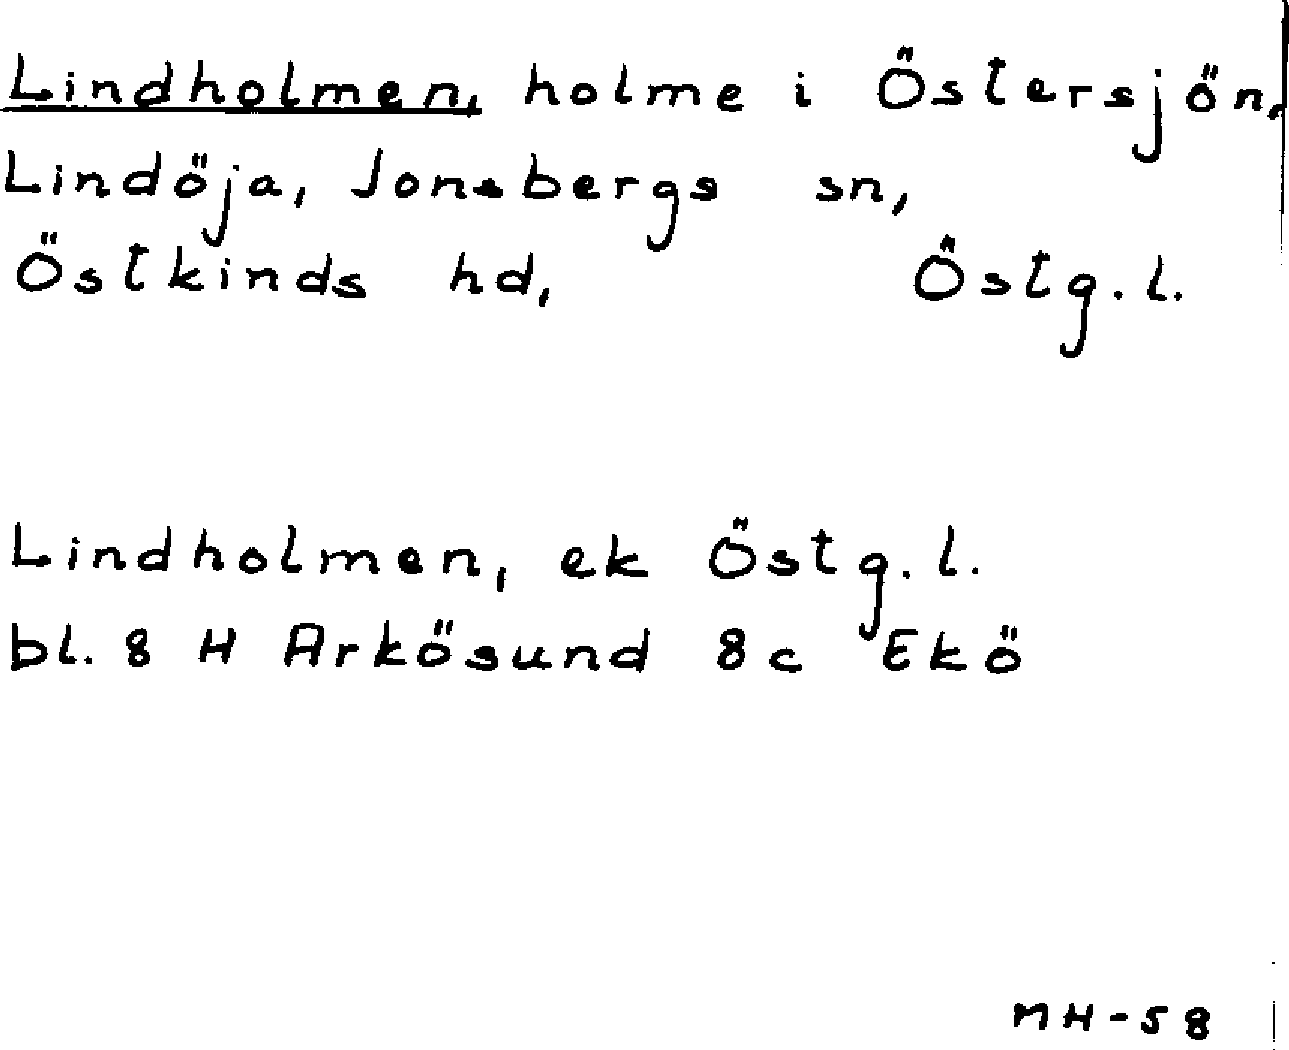 Lindholmen, holme i Östersjön,
Lindöja, Jonsbergs sn,
Östkinds hd, Östg. l.
Lindholmen, ek Östg. l.
bl. 8 H Arkösund 8c Ekö
MH-58